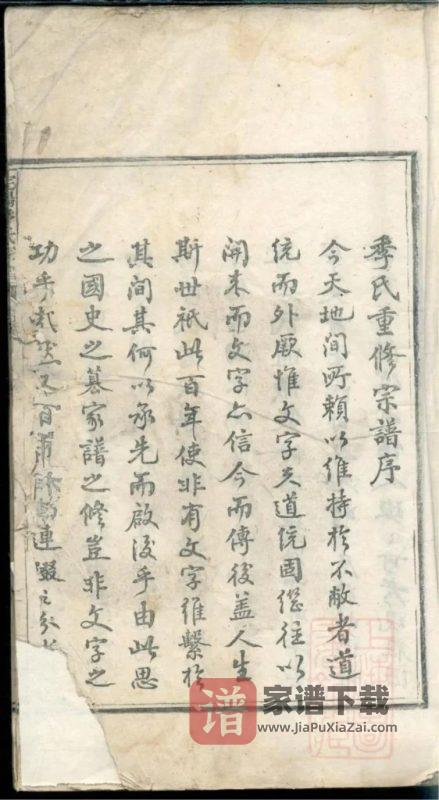 季氏重修宗譜序
今天地間所賴以維持於不敝者道
統而外厥惟文字夫道統固繼往以
開來而文字亦信今而傳後蓋人生
斯世祇此百年使非有文字維繫於
其間其何以承先而啟後乎由此思
之國史之纂家譜之修豈非文字之
功乎
連綴之
谱 家谱下载
www.JiaPuXiaZai.com